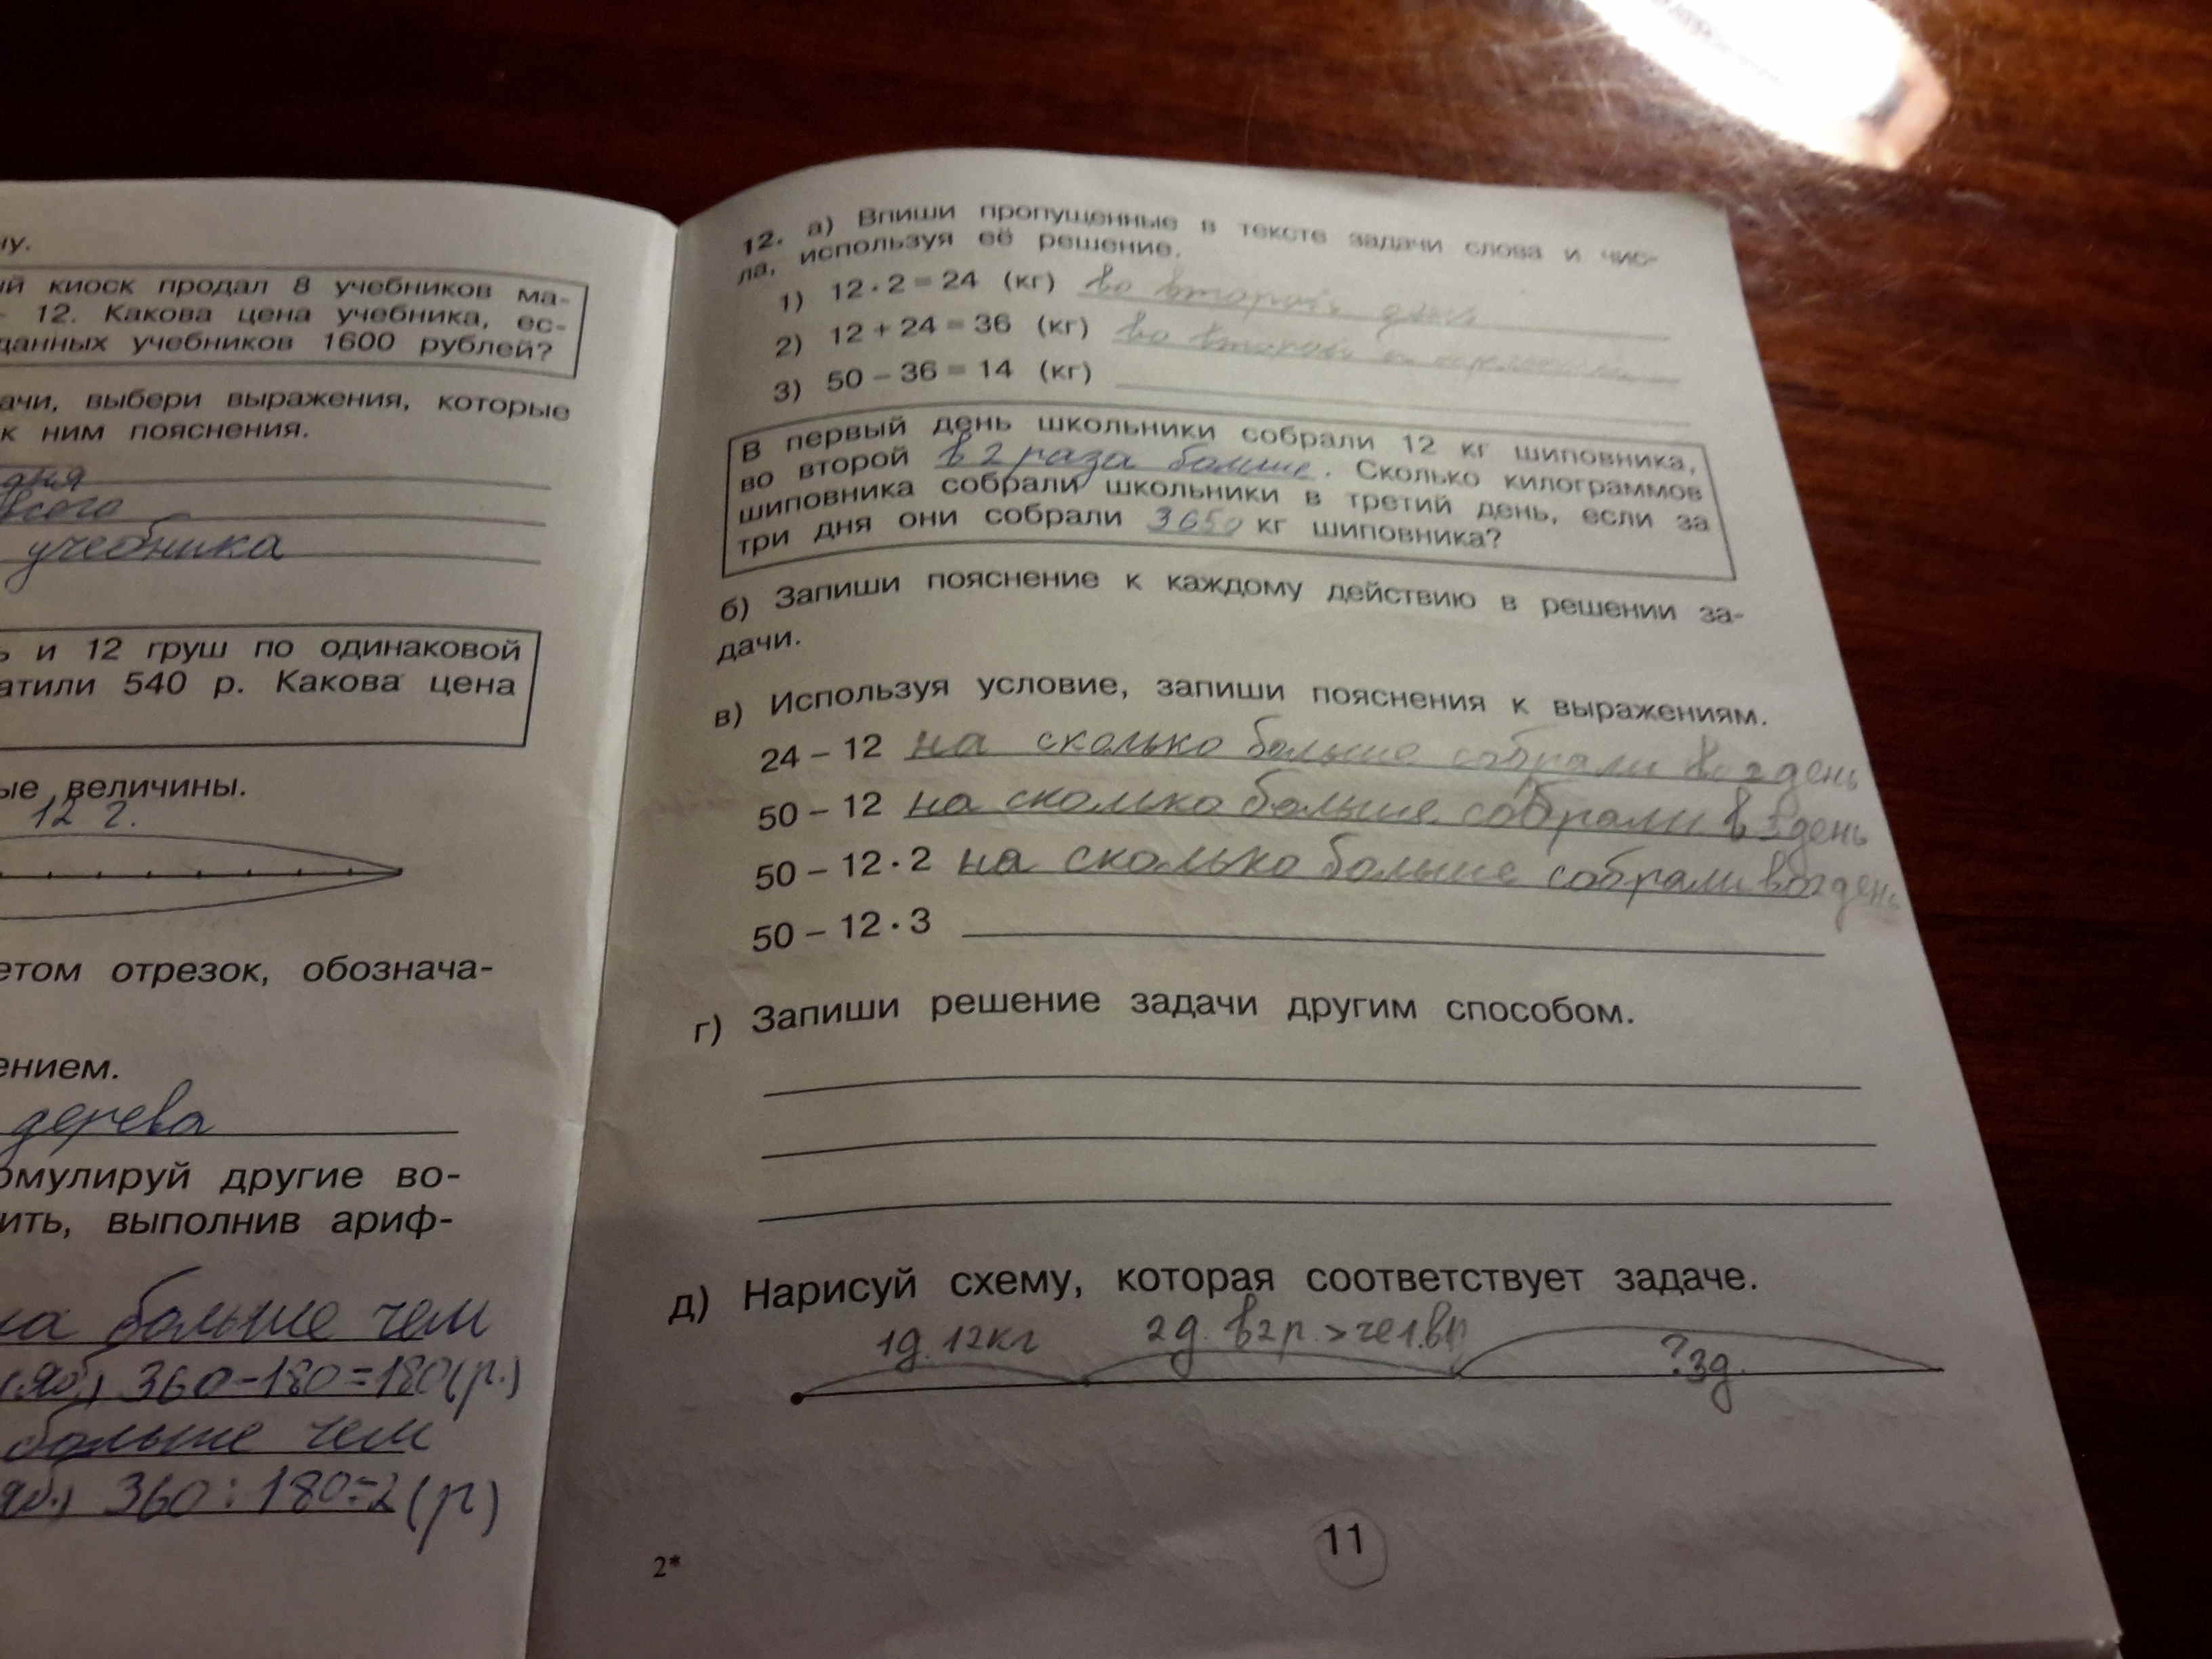 ну.
ый киоск продал 8 учебников ма-
- 12. Какова цена учебника, ес-
данных учебников 1600 рублей?
ачи, выбери выражения, которые
к ним пояснения.
дня
всего
учебника
ь и 12 груш по одинаковой
атили 540 р. Какова цена
ые величины.
12 г.
етом отрезок, обознача-
ением.
дерева
омулируй другие во-
ить, выполнив ариф-
на больше чем
(яб.) 360-180=180(р.)
больше чем
яб.) 360:180=2(р)
2*
12. а) Впиши пропущенные в тексте задачи слова и чис-
ла, используя её решение.
1) 12·2=24 (кг) во второй день
2) 12+24=36 (кг) во второй и
3) 50-36=14 (кг)
В первый день школьники собрали 12 кг шиповника,
во второй в 2 раза больше. Сколько килограммов
шиповника собрали школьники в третий день, если за
три дня они собрали 3650 кг шиповника?
б) Запиши пояснение к каждому действию в решении за-
дачи.
в) Используя условие, запиши пояснения к выражениям.
24-12 на сколько больше собрали во 2 день
50-12 на сколько больше собрали в день
50-12·2 на сколько больше собрали во 2 день
50-12·3
г) Запиши решение задачи другим способом.
д) Нарисуй схему, которая соответствует задаче.
1д. 12кг 2д. в2р.> ?3д.
11